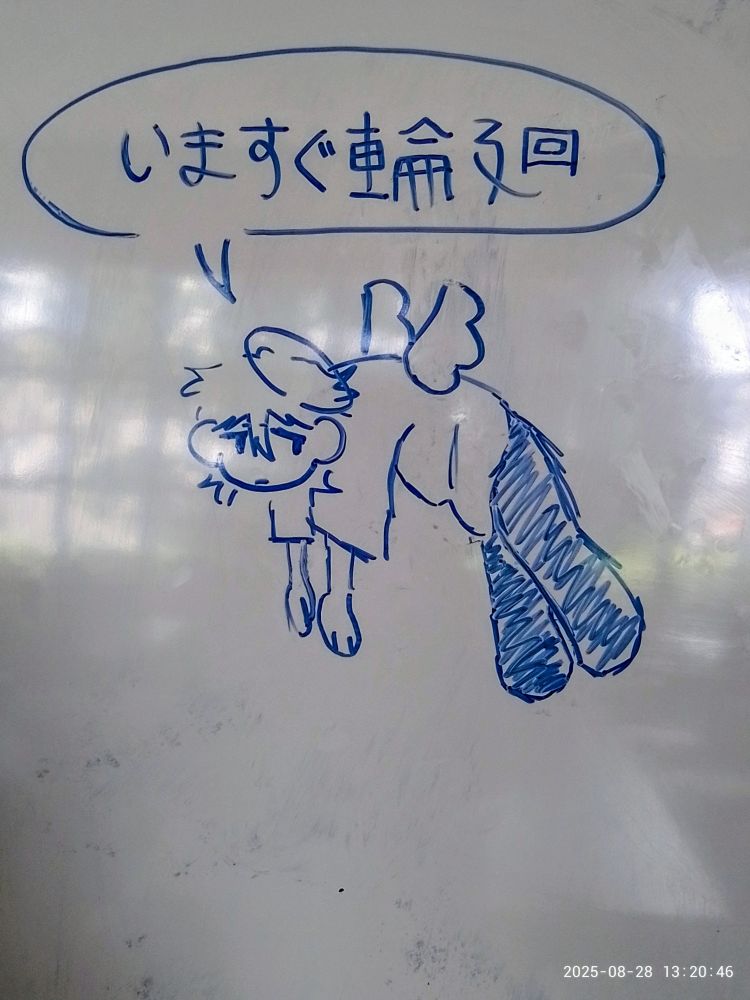 いますぐ輪廻
2025-08-28 13:20:46